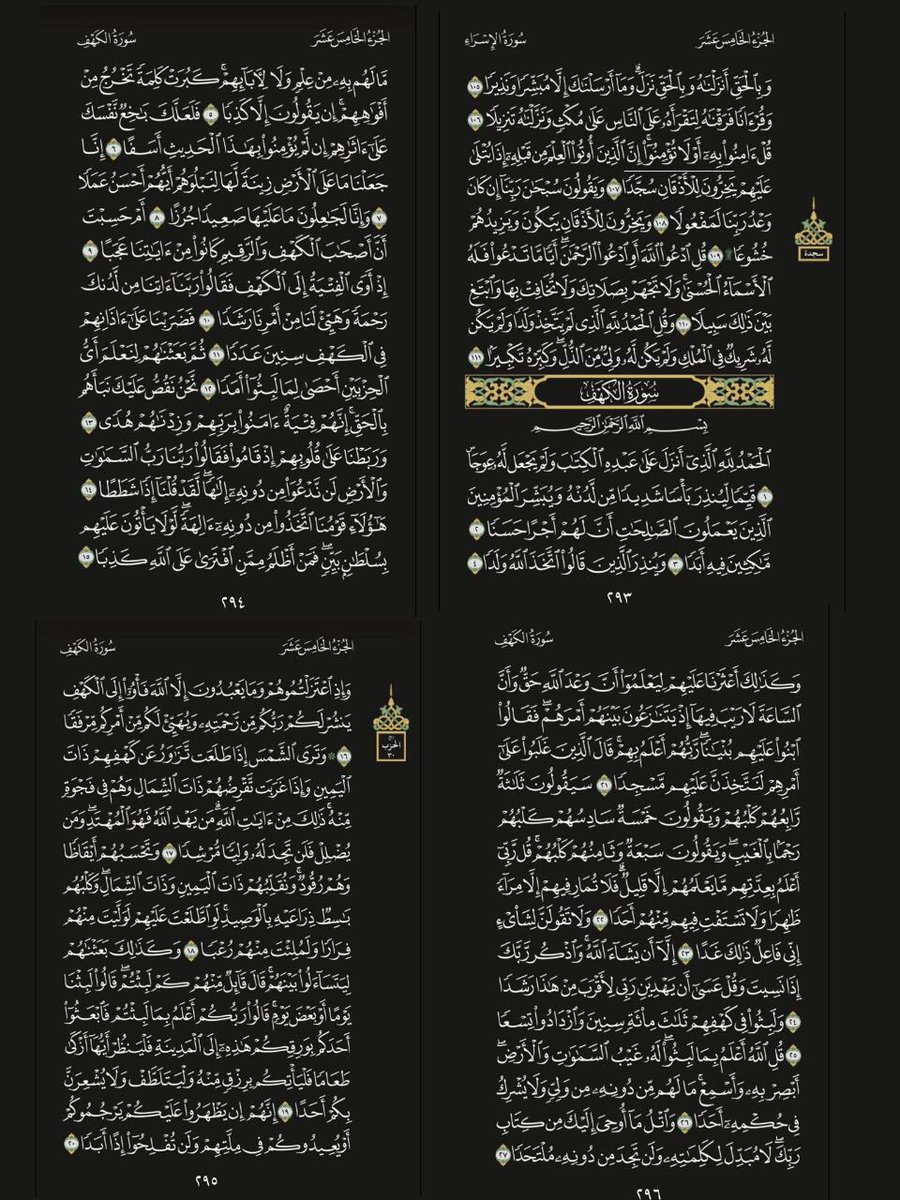 الجزء الخامس عشر
سورة الإسراء
وَبِٱلْحَقِّ أَنزَلْنَٰهُ وَبِٱلْحَقِّ نَزَلَ ۗ وَمَآ أَرْسَلْنَٰكَ إِلَّا مُبَشِّرًا وَنَذِيرًا ١٠٥
وَقُرْءَانًا فَرَقْنَٰهُ لِتَقْرَأَهُۥ عَلَى ٱلنَّاسِ عَلَىٰ مُكْثٍ وَنَزَّلْنَٰهُ تَنزِيلًا ١٠٦
قُلْ ءَامِنُوا۟ بِهِۦٓ أَوْ لَا تُؤْمِنُوٓا۟ ۚ إِنَّ ٱلَّذِينَ أُوتُوا۟ ٱلْعِلْمَ مِن قَبْلِهِۦٓ إِذَا يُتْلَىٰ
عَلَيْهِمْ يَخِرُّونَ لِلْأَذْقَانِ سُجَّدًا ١٠٧ وَيَقُولُونَ سُبْحَٰنَ رَبِّنَآ إِن كَانَ
وَعْدُ رَبِّنَا لَمَفْعُولًا ١٠٨ وَيَخِرُّونَ لِلْأَذْقَانِ يَبْكُونَ وَيَزِيدُهُمْ
خُشُوعًا ۩ ١٠٩ قُلِ ٱدْعُوا۟ ٱللَّهَ أَوِ ٱدْعُوا۟ ٱلرَّحْمَٰنَ ۖ أَيًّا مَّا تَدْعُوا۟ فَلَهُ
ٱلْأَسْمَآءُ ٱلْحُسْنَىٰ ۚ وَلَا تَجْهَرْ بِصَلَاتِكَ وَلَا تُخَافِتْ بِهَا وَٱبْتَغِ
بَيْنَ ذَٰلِكَ سَبِيلًا ١١٠ وَقُلِ ٱلْحَمْدُ لِلَّهِ ٱلَّذِى لَمْ يَتَّخِذْ وَلَدًا وَلَمْ يَكُن
لَّهُۥ شَرِيكٌ فِى ٱلْمُلْكِ وَلَمْ يَكُن لَّهُۥ وَلِىٌّ مِّنَ ٱلذُّلِّ ۖ وَكَبِّرْهُ تَكْبِيرًۢا ١١١
سجدة
سورة الكهف
بِسْمِ ٱللَّهِ ٱلرَّحْمَٰنِ ٱلرَّحِيمِ
ٱلْحَمْدُ لِلَّهِ ٱلَّذِىٓ أَنزَلَ عَلَىٰ عَبْدِهِ ٱلْكِتَٰبَ وَلَمْ يَجْعَل لَّهُۥ عِوَجَا
١ قَيِّمًا لِّيُنذِرَ بَأْسًا شَدِيدًا مِّن لَّدُنْهُ وَيُبَشِّرَ ٱلْمُؤْمِنِينَ
ٱلَّذِينَ يَعْمَلُونَ ٱلصَّٰلِحَٰتِ أَنَّ لَهُمْ أَجْرًا حَسَنًا ٢
مَّٰكِثِينَ فِيهِ أَبَدًا ٣ وَيُنذِرَ ٱلَّذِينَ قَالُوا۟ ٱتَّخَذَ ٱللَّهُ وَلَدًا ٤
٢٩٣
الجزء الخامس عشر
سورة الكهف
مَّا لَهُم بِهِۦ مِنْ عِلْمٍ وَلَا لِءَابَآئِهِمْ ۚ كَبُرَتْ كَلِمَةً تَخْرُجُ مِنْ
أَفْوَٰهِهِمْ ۚ إِن يَقُولُونَ إِلَّا كَذِبًا ٥ فَلَعَلَّكَ بَٰخِعٌ نَّفْسَكَ
عَلَىٰٓ ءَاثَٰرِهِمْ إِن لَّمْ يُؤْمِنُوا۟ بِهَٰذَا ٱلْحَدِيثِ أَسَفًا ٦ إِنَّا
جَعَلْنَا مَا عَلَى ٱلْأَرْضِ زِينَةً لَّهَا لِنَبْلُوَهُمْ أَيُّهُمْ أَحْسَنُ عَمَلًا
٧ وَإِنَّا لَجَٰعِلُونَ مَا عَلَيْهَا صَعِيدًا جُرُزًا ٨ أَمْ حَسِبْتَ
أَنَّ أَصْحَٰبَ ٱلْكَهْفِ وَٱلرَّقِيمِ كَانُوا۟ مِنْ ءَايَٰتِنَا عَجَبًا ٩
إِذْ أَوَى ٱلْفِتْيَةُ إِلَى ٱلْكَهْفِ فَقَالُوا۟ رَبَّنَآ ءَاتِنَا مِن لَّدُنكَ
رَحْمَةً وَهَيِّئْ لَنَا مِنْ أَمْرِنَا رَشَدًا ١٠ فَضَرَبْنَا عَلَىٰٓ ءَاذَانِهِمْ
فِى ٱلْكَهْفِ سِنِينَ عَدَدًا ١١ ثُمَّ بَعَثْنَٰهُمْ لِنَعْلَمَ أَىُّ
ٱلْحِزْبَيْنِ أَحْصَىٰ لِمَا لَبِثُوٓا۟ أَمَدًا ١٢ نَّحْنُ نَقُصُّ عَلَيْكَ نَبَأَهُم
بِٱلْحَقِّ ۚ إِنَّهُمْ فِتْيَةٌ ءَامَنُوا۟ بِرَبِّهِمْ وَزِدْنَٰهُمْ هُدًى ١٣
وَرَبَطْنَا عَلَىٰ قُلُوبِهِمْ إِذْ قَامُوا۟ فَقَالُوا۟ رَبُّنَا رَبُّ ٱلسَّمَٰوَٰتِ
وَٱلْأَرْضِ لَن نَّدْعُوَا۟ مِن دُونِهِۦٓ إِلَٰهًا ۖ لَّقَدْ قُلْنَآ إِذًا شَطَطًا ١٤
هَٰٓؤُلَآءِ قَوْمُنَا ٱتَّخَذُوا۟ مِن دُونِهِۦٓ ءَالِهَةً ۖ لَّوْلَا يَأْتُونَ عَلَيْهِم
بِسُلْطَٰنٍۭ بَيِّنٍ ۖ فَمَنْ أَظْلَمُ مِمَّنِ ٱفْتَرَىٰ عَلَى ٱللَّهِ كَذِبًا ١٥
٢٩٤
الجزء الخامس عشر
سورة الكهف
وَإِذِ ٱعْتَزَلْتُمُوهُمْ وَمَا يَعْبُدُونَ إِلَّا ٱللَّهَ فَأْوُۥٓا۟ إِلَى ٱلْكَهْفِ
يَنشُرْ لَكُمْ رَبُّكُم مِّن رَّحْمَتِهِۦ وَيُهَيِّئْ لَكُم مِّنْ أَمْرِكُم مِّرْفَقًا
١٦ ۞ وَتَرَى ٱلشَّمْسَ إِذَا طَلَعَت تَّزَٰوَرُ عَن كَهْفِهِمْ ذَاتَ
ٱلْيَمِينِ وَإِذَا غَرَبَت تَّقْرِضُهُمْ ذَاتَ ٱلشِّمَالِ وَهُمْ فِى فَجْوَةٍ
مِّنْهُ ۚ ذَٰلِكَ مِنْ ءَايَٰتِ ٱللَّهِ ۗ مَن يَهْدِ ٱللَّهُ فَهُوَ ٱلْمُهْتَدِ ۖ وَمَن
يُضْلِلْ فَلَن تَجِدَ لَهُۥ وَلِيًّا مُّرْشِدًا ١٧ وَتَحْسَبُهُمْ أَيْقَاظًا
وَهُمْ رُقُودٌ ۚ وَنُقَلِّبُهُمْ ذَاتَ ٱلْيَمِينِ وَذَاتَ ٱلشِّمَالِ ۖ وَكَلْبُهُم
بَٰسِطٌ ذِرَاعَيْهِ بِٱلْوَصِيدِ ۚ لَوِ ٱطَّلَعْتَ عَلَيْهِمْ لَوَلَّيْتَ مِنْهُمْ
فِرَارًا وَلَمُلِئْتَ مِنْهُمْ رُعْبًا ١٨ وَكَذَٰلِكَ بَعَثْنَٰهُمْ
لِيَتَسَآءَلُوا۟ بَيْنَهُمْ ۚ قَالَ قَآئِلٌ مِّنْهُمْ كَمْ لَبِثْتُمْ ۖ قَالُوا۟ لَبِثْنَا
يَوْمًا أَوْ بَعْضَ يَوْمٍ ۚ قَالُوا۟ رَبُّكُمْ أَعْلَمُ بِمَا لَبِثْتُمْ فَٱبْعَثُوٓا۟
أَحَدَكُم بِوَرِقِكُمْ هَٰذِهِۦٓ إِلَى ٱلْمَدِينَةِ فَلْيَنظُرْ أَيُّهَآ أَزْكَىٰ
طَعَامًا فَلْيَأْتِكُم بِرِزْقٍ مِّنْهُ وَلْيَتَلَطَّفْ وَلَا يُشْعِرَنَّ
بِكُمْ أَحَدًا ١٩ إِنَّهُمْ إِن يَظْهَرُوا۟ عَلَيْكُمْ يَرْجُمُوكُمْ
أَوْ يُعِيدُوكُمْ فِى مِلَّتِهِمْ وَلَن تُفْلِحُوٓا۟ إِذًا أَبَدًا ٢٠
الحزب
٣٠
٢٩٥
الجزء الخامس عشر
سورة الكهف
وَكَذَٰلِكَ أَعْثَرْنَا عَلَيْهِمْ لِيَعْلَمُوٓا۟ أَنَّ وَعْدَ ٱللَّهِ حَقٌّ وَأَنَّ
ٱلسَّاعَةَ لَا رَيْبَ فِيهَآ إِذْ يَتَنَٰزَعُونَ بَيْنَهُمْ أَمْرَهُمْ ۖ فَقَالُوا۟
ٱبْنُوا۟ عَلَيْهِم بُنْيَٰنًا ۖ رَّبُّهُمْ أَعْلَمُ بِهِمْ ۚ قَالَ ٱلَّذِينَ غَلَبُوا۟ عَلَىٰٓ
أَمْرِهِمْ لَنَتَّخِذَنَّ عَلَيْهِم مَّسْجِدًا ٢١ سَيَقُولُونَ ثَلَٰثَةٌ
رَّابِعُهُمْ كَلْبُهُمْ وَيَقُولُونَ خَمْسَةٌ سَادِسُهُمْ كَلْبُهُمْ
رَجْمًۢا بِٱلْغَيْبِ ۖ وَيَقُولُونَ سَبْعَةٌ وَثَامِنُهُمْ كَلْبُهُمْ ۚ قُل رَّبِّىٓ
أَعْلَمُ بِعِدَّتِهِم مَّا يَعْلَمُهُمْ إِلَّا قَلِيلٌ ۗ فَلَا تُمَارِ فِيهِمْ إِلَّا مِرَآءً
ظَٰهِرًا وَلَا تَسْتَفْتِ فِيهِم مِّنْهُمْ أَحَدًا ٢٢ وَلَا تَقُولَنَّ لِشَا۟ىْءٍ
إِنِّى فَاعِلٌ ذَٰلِكَ غَدًا ٢٣ إِلَّآ أَن يَشَآءَ ٱللَّهُ ۚ وَٱذْكُر رَّبَّكَ
إِذَا نَسِيتَ وَقُلْ عَسَىٰٓ أَن يَهْدِيَنِ رَبِّى لِأَقْرَبَ مِنْ هَٰذَا رَشَدًا
٢٤ وَلَبِثُوا۟ فِى كَهْفِهِمْ ثَلَٰثَ مِا۟ئَةٍ سِنِينَ وَٱزْدَادُوا۟ تِسْعًا
٢٥ قُلِ ٱللَّهُ أَعْلَمُ بِمَا لَبِثُوا۟ ۖ لَهُۥ غَيْبُ ٱلسَّمَٰوَٰتِ وَٱلْأَرْضِ ۖ
أَبْصِرْ بِهِۦ وَأَسْمِعْ ۚ مَا لَهُم مِّن دُونِهِۦ مِن وَلِىٍّ وَلَا يُشْرِكُ
فِى حُكْمِهِۦٓ أَحَدًا ٢٦ وَٱتْلُ مَآ أُوحِىَ إِلَيْكَ مِن كِتَابِ
رَبِّكَ ۖ لَا مُبَدِّلَ لِكَلِمَٰتِهِۦ وَلَن تَجِدَ مِن دُونِهِۦ مُلْتَحَدًا ٢٧
٢٩٦